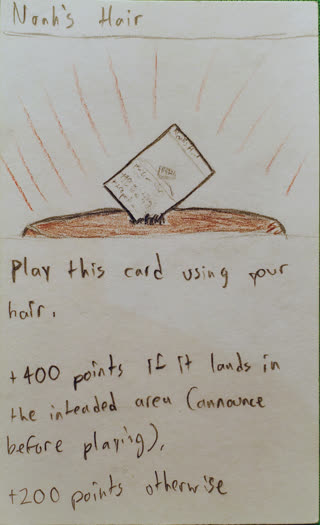 Noah's Hair
Play this card using your
hair.
+400 points if it lands in
the intended area (announce
before playing),
+200 points otherwise